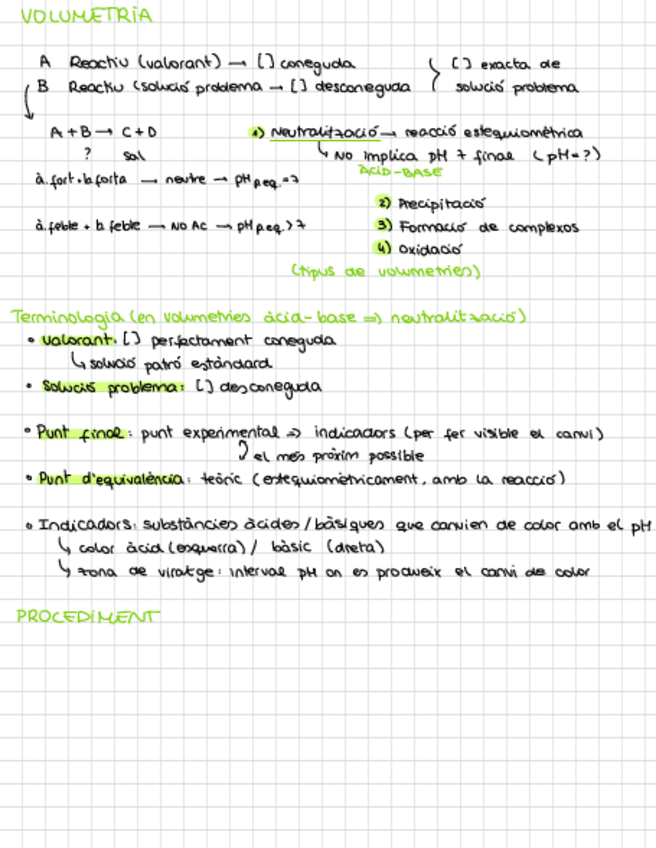 VOLUMETRIA
A Reactiu (valorant) → [] coneguda
B Reactiu (solució problema → [] desconeguda
[] exacta de
solució problema
A + B → C + D
? sal
à. fort + b. forta → neutre → pH p.eq. = 7
à. feble + b. feble → NO AC → pH p.eq. > 7
1) Neutralització → reacció estequiomètrica
↳ NO implica pH 7 final (pH = ?)
ÀCID-BASE
2) Precipitació
3) Formació de complexos
4) Oxidació
(tipus de volumetries)
Terminologia (en volumetries àcid-base ⇒ neutralització)
• Valorant: [] perfectament coneguda
↳ solució patró estàndard
• Solució problema: [] desconeguda
• Punt final: punt experimental ⇒ indicadors (per fer visible el canvi)
el més pròxim possible
• Punt d'equivalència: teòric (estequiomètricament, amb la reacció)
• Indicadors: substàncies àcides / bàsiques que canvien de color amb el pH
↳ color àcid (esquerra) / bàsic (dreta)
↳ zona de viratge: interval pH on es produeix el canvi de color
PROCEDIMENT